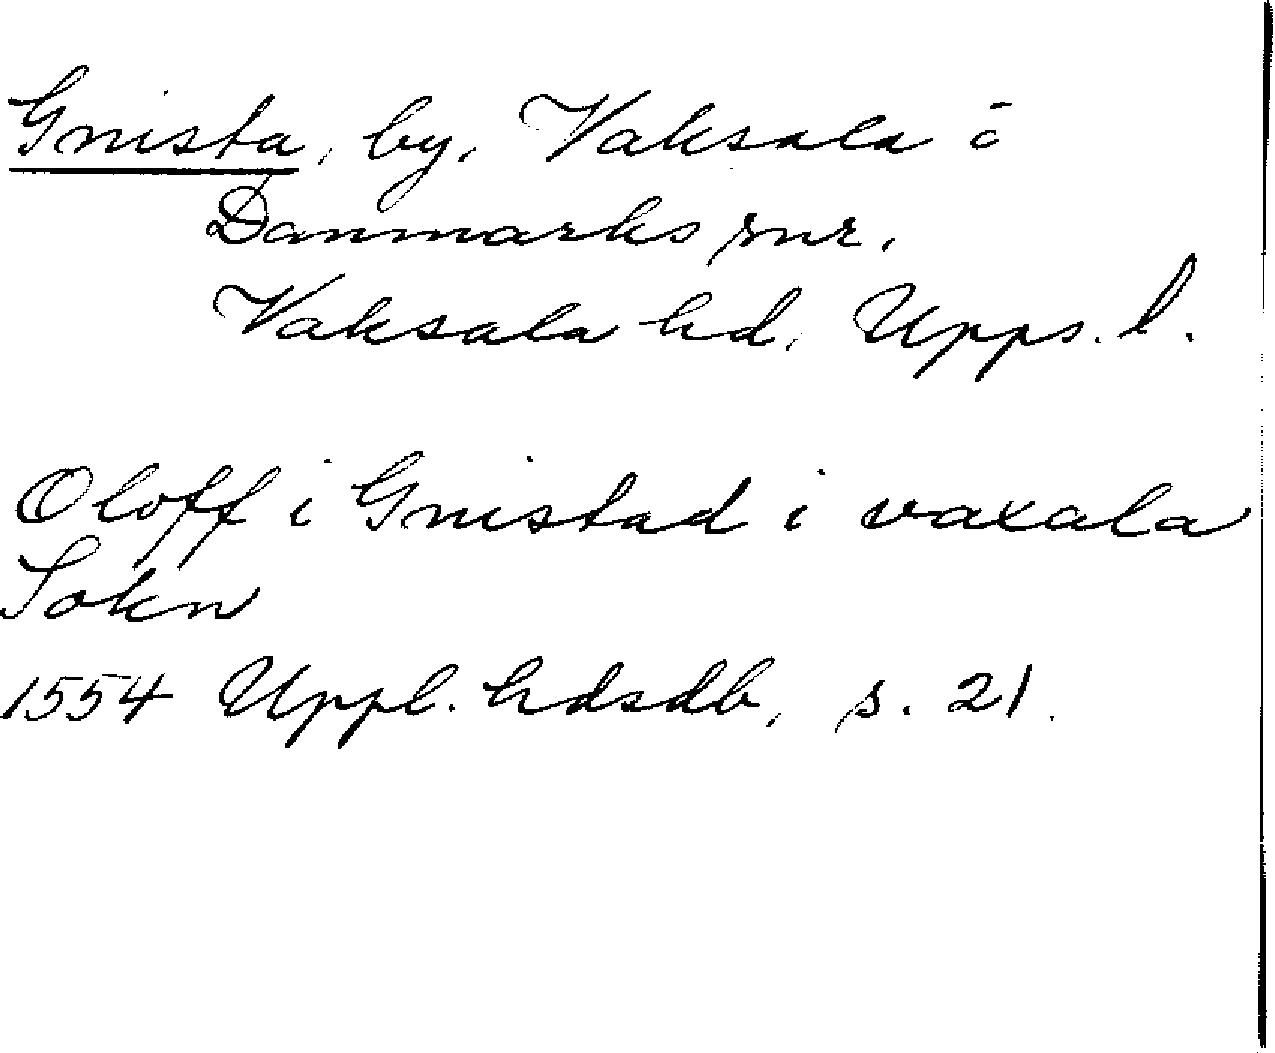 Gnista, by, Vaksala o
Danmarks snr.
Vaksala hd, Upps. l.
Oloff i Gnistad i vaxala
Sokn
1554 Uppl. hdsdb, s. 21.